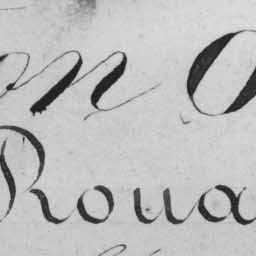 on O
Roua